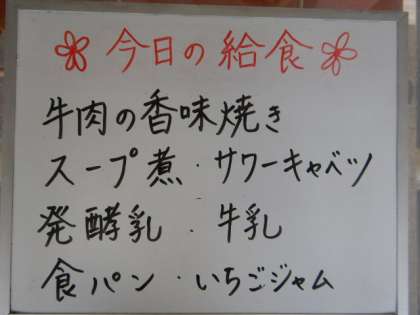 今日の給食
牛肉の香味焼き
スープ煮・サワーキャベツ
発酵乳・牛乳
食パン・いちごジャム